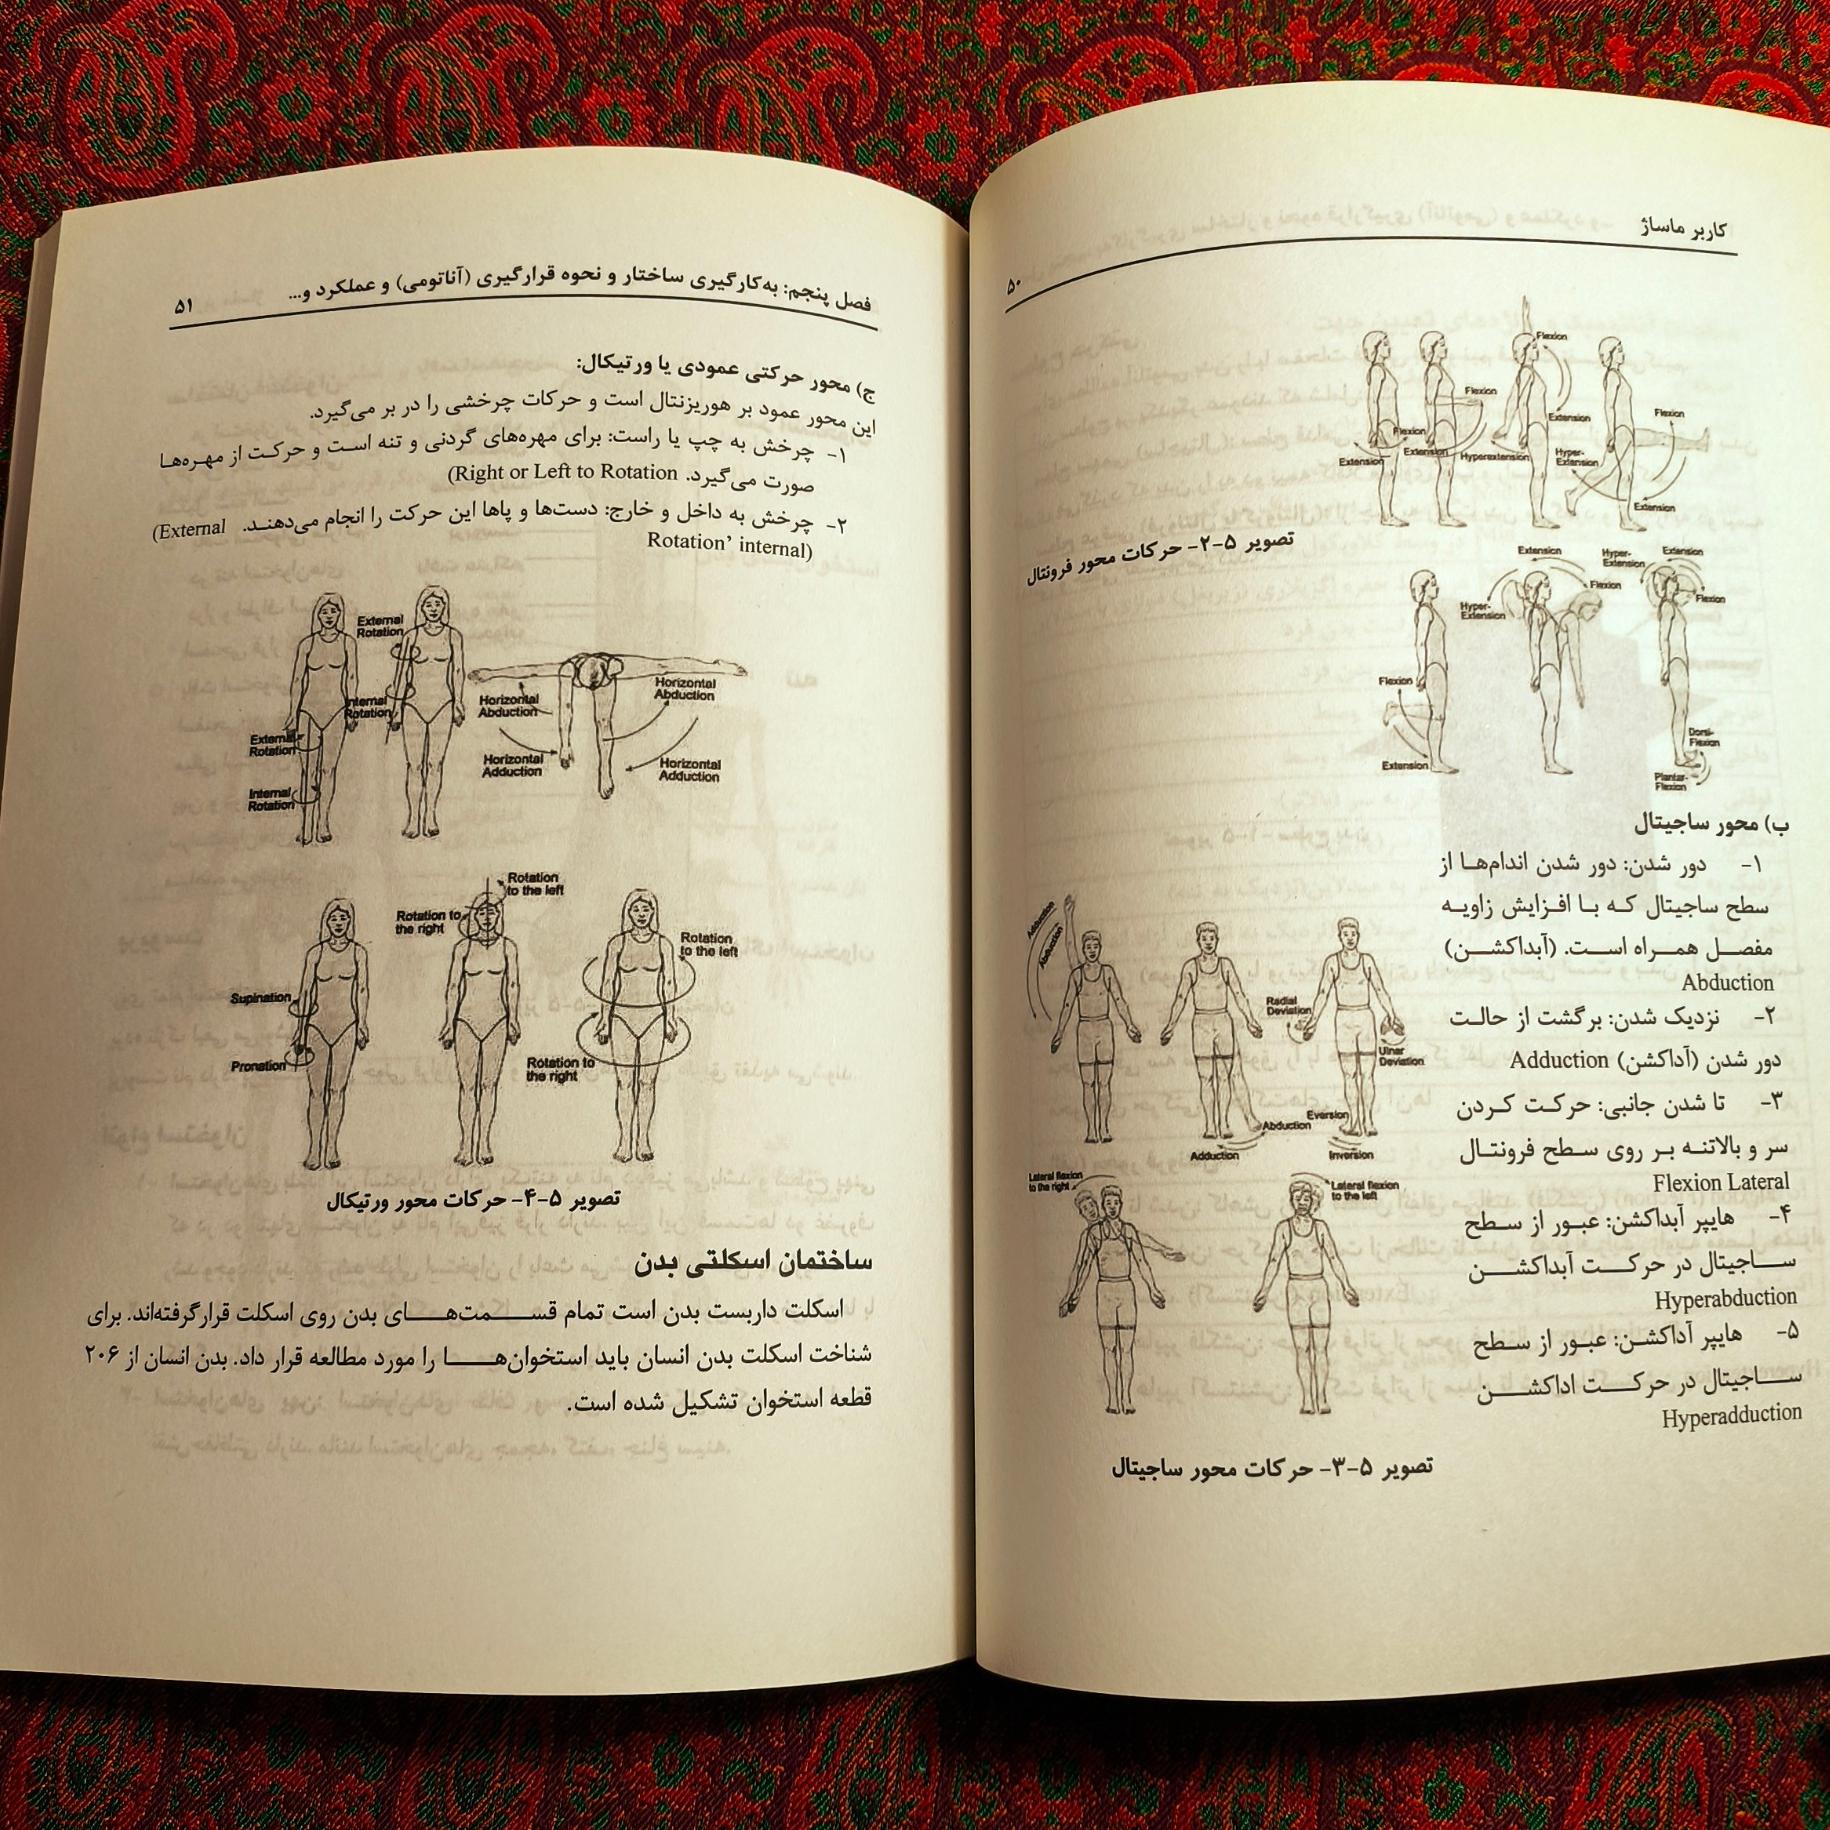 کاربر ماساژ
۵۰
Flexion
Flexion
Extension
Flexion
Flexion
Extension
Extension
Hyperextension
Hyper-
Extension
Extension
تصویر ۵-۲- حرکات محور فرونتال
Extension
Hyper-
Extension
Extension
Flexion
Flexion
Hyper-
Extension
Flexion
Extension
Dorsi-
Flexion
Plantar-
Flexion
ب) محور ساجیتال
۱- دور شدن: دور شدن اندام‌ها از
سطح ساجیتال که با افزایش زاویه
مفصل همراه است. (آبداکشن)
Abduction
۲- نزدیک شدن: برگشت از حالت
دور شدن (آداکشن) Adduction
۳- تا شدن جانبی: حرکت کردن
سر و بالاتنه بر روی سطح فرونتال
Flexion Lateral
۴- هایپر آبداکشن: عبور از سطح
ساجیتال در حرکت آبداکشن
Hyperabduction
۵- هایپر آداکشن: عبور از سطح
ساجیتال در حرکت اداکشن
Hyperadduction
Adduction
Abduction
Radial
Deviation
Ulnar
Deviation
Abduction
Adduction
Eversion
Inversion
Lateral flexion
to the right
Lateral flexion
to the left
تصویر ۵-۳- حرکات محور ساجیتال
فصل پنجم: به‌کارگیری ساختار و نحوه قرارگیری (آناتومی) و عملکرد و...
۵۱
ج) محور حرکتی عمودی یا ورتیکال:
این محور عمود بر هوریزنتال است و حرکات چرخشی را در بر می‌گیرد.
۱- چرخش به چپ یا راست: برای مهره‌های گردنی و تنه است و حرکت از مهره‌ها
صورت می‌گیرد. Right or Left to Rotation)
۲- چرخش به داخل و خارج: دست‌ها و پاها این حرکت را انجام می‌دهند. (External
Rotation' internal)
External
Rotation
Internal
Rotation
External
Rotation
Internal
Rotation
Horizontal
Abduction
Horizontal
Abduction
Horizontal
Adduction
Horizontal
Adduction
Rotation
to the left
Rotation to
the right
Rotation
to the left
Supination
Pronation
Rotation to
the right
تصویر ۵-۴- حرکات محور ورتیکال
ساختمان اسکلتی بدن
اسکلت داربست بدن است تمام قسمت‌های بدن روی اسکلت قرارگرفته‌اند. برای
شناخت اسکلت بدن انسان باید استخوان‌ها را مورد مطالعه قرار داد. بدن انسان از ۲۰۶
قطعه استخوان تشکیل شده است.